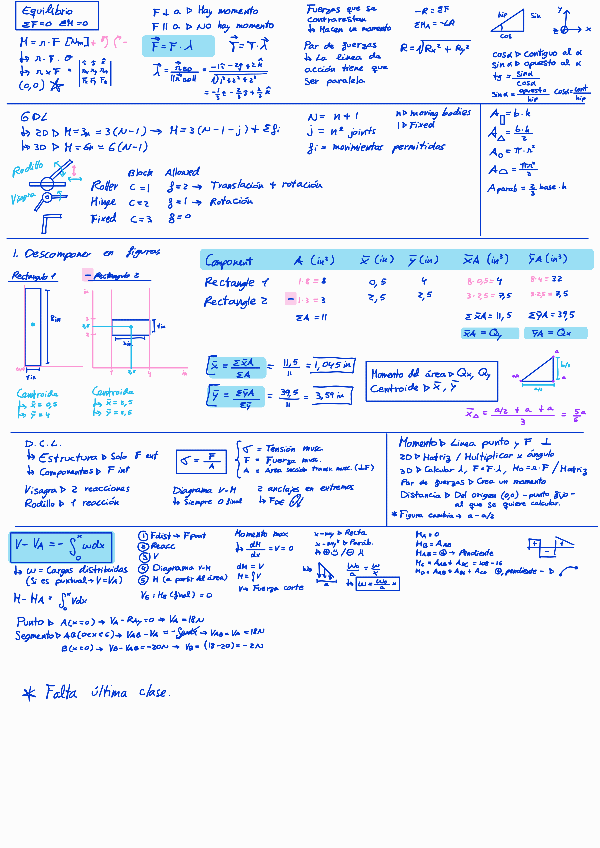 Equilibrio
ΣF=0 ΣM=0
M = r · F [Nm]
↳ r · F · σ
↳ r x F =
(0,0)
F ⊥ a ▷ Hay momento
F ll a ▷ No hay momento
F = F · λ
F = T · λ
Fuerzas que se
contrarrestan
↳ Hacen un momento
Par de fuerzas
↳ La línea de
acción tiene que
ser paralela
-R = ΣF
R = √Rx² + Ry²
hip
sin
cos
y
x
z
cos α ▷ contiguo al α
sin α ▷ opuesto al α
tg = sin α / cos α
sin α = opuesto / hip cos α = cont / hip
GDL
↳ 2D ▷ M = 3n = 3(N-1) → M = 3(N-1-j) + Σfi
↳ 3D ▷ M = 6n = 6(N-1)
N = n + 1 n ▷ moving bodies
1 ▷ Fixed
j = nº joints
fi = movimientos permitidos
A = b · h
A△ = b · h / 2
A○ = π · r²
A = πr² / 2
A parab = 2/3 base · h
Rodillo
Block Allowed
Roller C=1 f=2 → Translación + rotación
Hinge C=2 f=1 → Rotación
Fixed C=3 f=0
1. Descomponer en figuras
Rectángulo 1
- Rectángulo 2
8in
1in
Centroide
↳ x̄ = 0,5
↳ ȳ = 4
Centroide
↳ x̄ = 2,5
Component A (in²) x̄ (in) ȳ (in) x̄A (in³) ȳA (in³)
Rectangle 1 1·8 = 8 0,5 4 8·0,5 = 4 8·4 = 32
Rectangle 2 - 1·3 = 3 2,5 2,5 3·2,5 = 7,5 3·2,5 = 7,5
ΣA = 11 Σx̄A = 11,5 ΣȳA = 39,5
x̄A = Qy ȳA = Qx
x̄ = Σx̄A / ΣA = 11,5 / 11 = 1,045 in
ȳ = ΣȳA / Σȳ = 39,5 / 11 = 3,59 in
Momento del área ▷ Qx, Qy
Centroide ▷ x̄, ȳ
x̄△ = a/2 + a + a / 3 = 5a / 6
D.C.L.
↳ Estructura ▷ Solo F ext
↳ Componentes ▷ F int
Visagra ▷ 2 reacciones
Rodillo ▷ 1 reacción
σ = F / A
σ = Tensión musc.
F = Fuerza musc.
A = Área sección transv. musc. (⊥F)
Diagrama V-M
↳ Siempre 0 final
2 anclajes en extremos
Momento ▷ Línea punto y F ⊥
2D ▷ Matriz / Multiplicar x ángulo
3D ▷ Calcular λ, F = F·λ, Mo = r·F / Matriz
Par de fuerzas ▷ Crea un momento
Distancia ▷ Del origen (0,0) - punto fijo -
al que se quiere calcular.
* Figura cambia → a - a/2
V - VA = - ∫₀ˣ ω dx
↳ ω = Cargas distribuidas
(Si es puntual → V = VA)
M - MA = ∫₀ˣ V dx
① Fdist → Fpunt
② Reacc
③ V
④ Diagrama V-M
⑤ M (a partir del área)
VB = MB (final) = 0
Momento max
↳ dM / dx = V = 0
dM = V
M = ∫V
V → Fuerza corte
x → my ▷ Recta
x → my² ▷ Parab.
MA = 0
MB = AAB
MAB = ⊕ → Pendiente
Punto ▷ A(x=0) → VA - RAy = 0 → VA = 18N
Segmento ▷ AB (0<x<6) → VAB - VA = - → VAB = VA = 18N
B(x=0) → VB - VAB = -20N → VB = (18-20) = -2N
* Falta última clase.